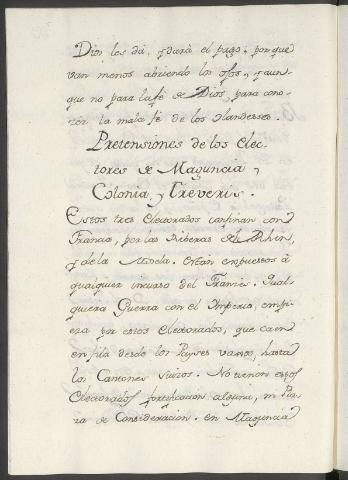 Dios les dá, y dará el pago, porque
van menos abriendo los ojos, y aun-
que no para la fé de Dios, para cono-
zer la mala fé de los olandeses.
Pretensiones de los Elec-
tores de Maguncia,
Colonia, y Treveris.
Estos tres Electorados confinan con
Francia, por las Riberas del Rhin,
y de la Mosela. Están expuestos á
qualquier incurso del Francés. Qual-
quiera Guerra con el Imperio, empie-
za por estos Electorados, que caen
en fila desde los Payses vaxos, hasta
los Cantones suizos. No tienen estos
Electorados fortificacion alguna, ni Pla-
za de Consideracion. en Maguncia